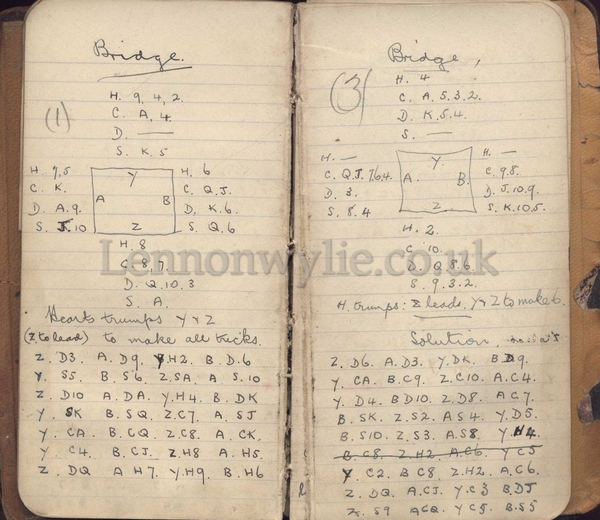 Bridge.
(1)
H. 9, 4, 2.
C. A, 4.
D. —
S. K, 5
H. 7,5
C. K.
D. A.9.
S. J.10
Y
A B
Z
H. 6
C. Q.J.
D. K.6.
S. Q.6
H. 8
C. 8,7.
D. Q.10.3
S. A.
Hearts trumps Y & Z
(Z to lead) to make all tricks.
Z. D3 A. D9 Y.H2. B. D.6
Y. S5 B. S6 Z.SA. A S.10
Z. D10 A. DA. Y.H4. B. DK
Y. SK B. SQ. Z.C7. A. SJ
Y. CA B. CQ Z.C8. A. CK.
Y. C4. B. CJ. Z.H8 A. H5.
Z. DQ A H7. Y.H9. B. H6
Bridge,
(3)
H. 4
C. A.5.3.2.
D. K.5.4.
S. —
H. —
C. Q.J.7.6.4.
D. 3.
S. 8.4
Y.
A. B.
Z
H. —
C. 9.8.
D. J.10.9.
S. K.10.5.
H. 2.
C. 10.
D. Q.8.6.
S. 9.3.2.
H. trumps: Z leads, Y & Z to make 6.
Solution.
Z. D6. A. D3. Y.DK. B.D9.
Y. CA. B.C9. Z.C10. A.C4.
Y. D4. B D10. Z.D8. A C7.
B. SK. Z.S2. A S4. Y.D5.
B. S10. Z.S3. A.S8. Y.H4.
B. C8. Z.H2. A.C6. Y C5
Y C2 B C8. Z.H2. A.C6.
Z. DQ. A.CJ. Y.C3 B.DJ
Z. S9 A CQ. Y C5. B.S5
Lennonwylie.co.uk